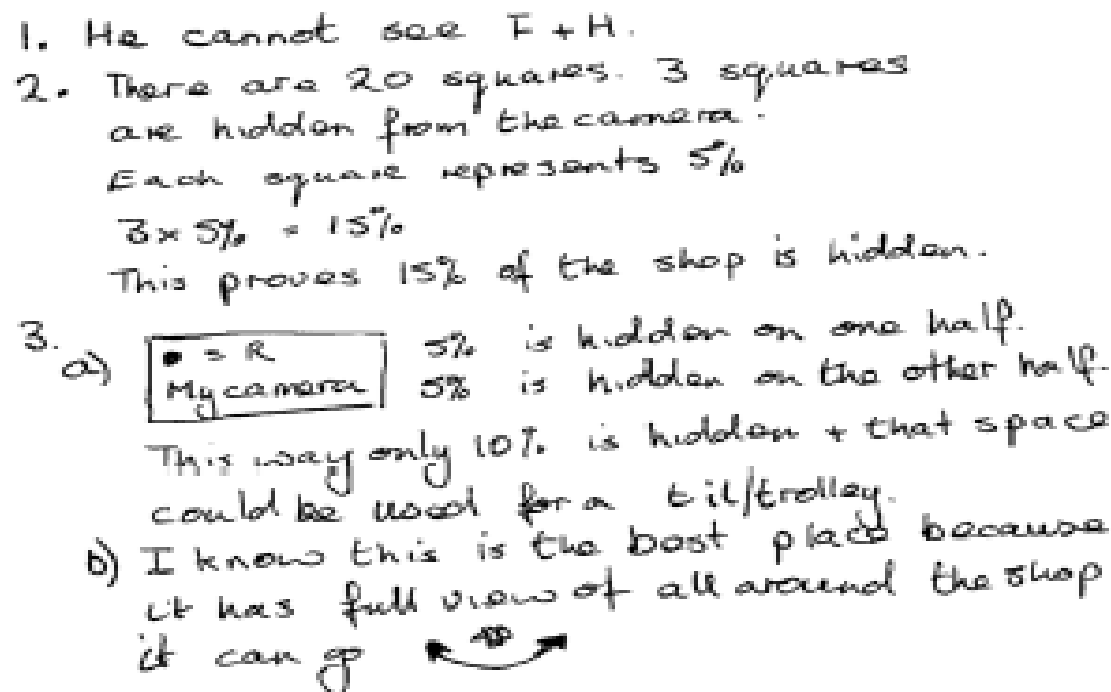 1. He cannot see F + H.
2. There are 20 squares. 3 squares
are hidden from the camera.
Each square represents 5%
3 × 5% = 15%
This proves 15% of the shop is hidden.
3.
a) • = R 5% is hidden on one half.
My camera 5% is hidden on the other half.
This way only 10% is hidden + that space
could be used for a til/trolley.
b) I know this is the best place because
it has full view of all around the shop
it can go